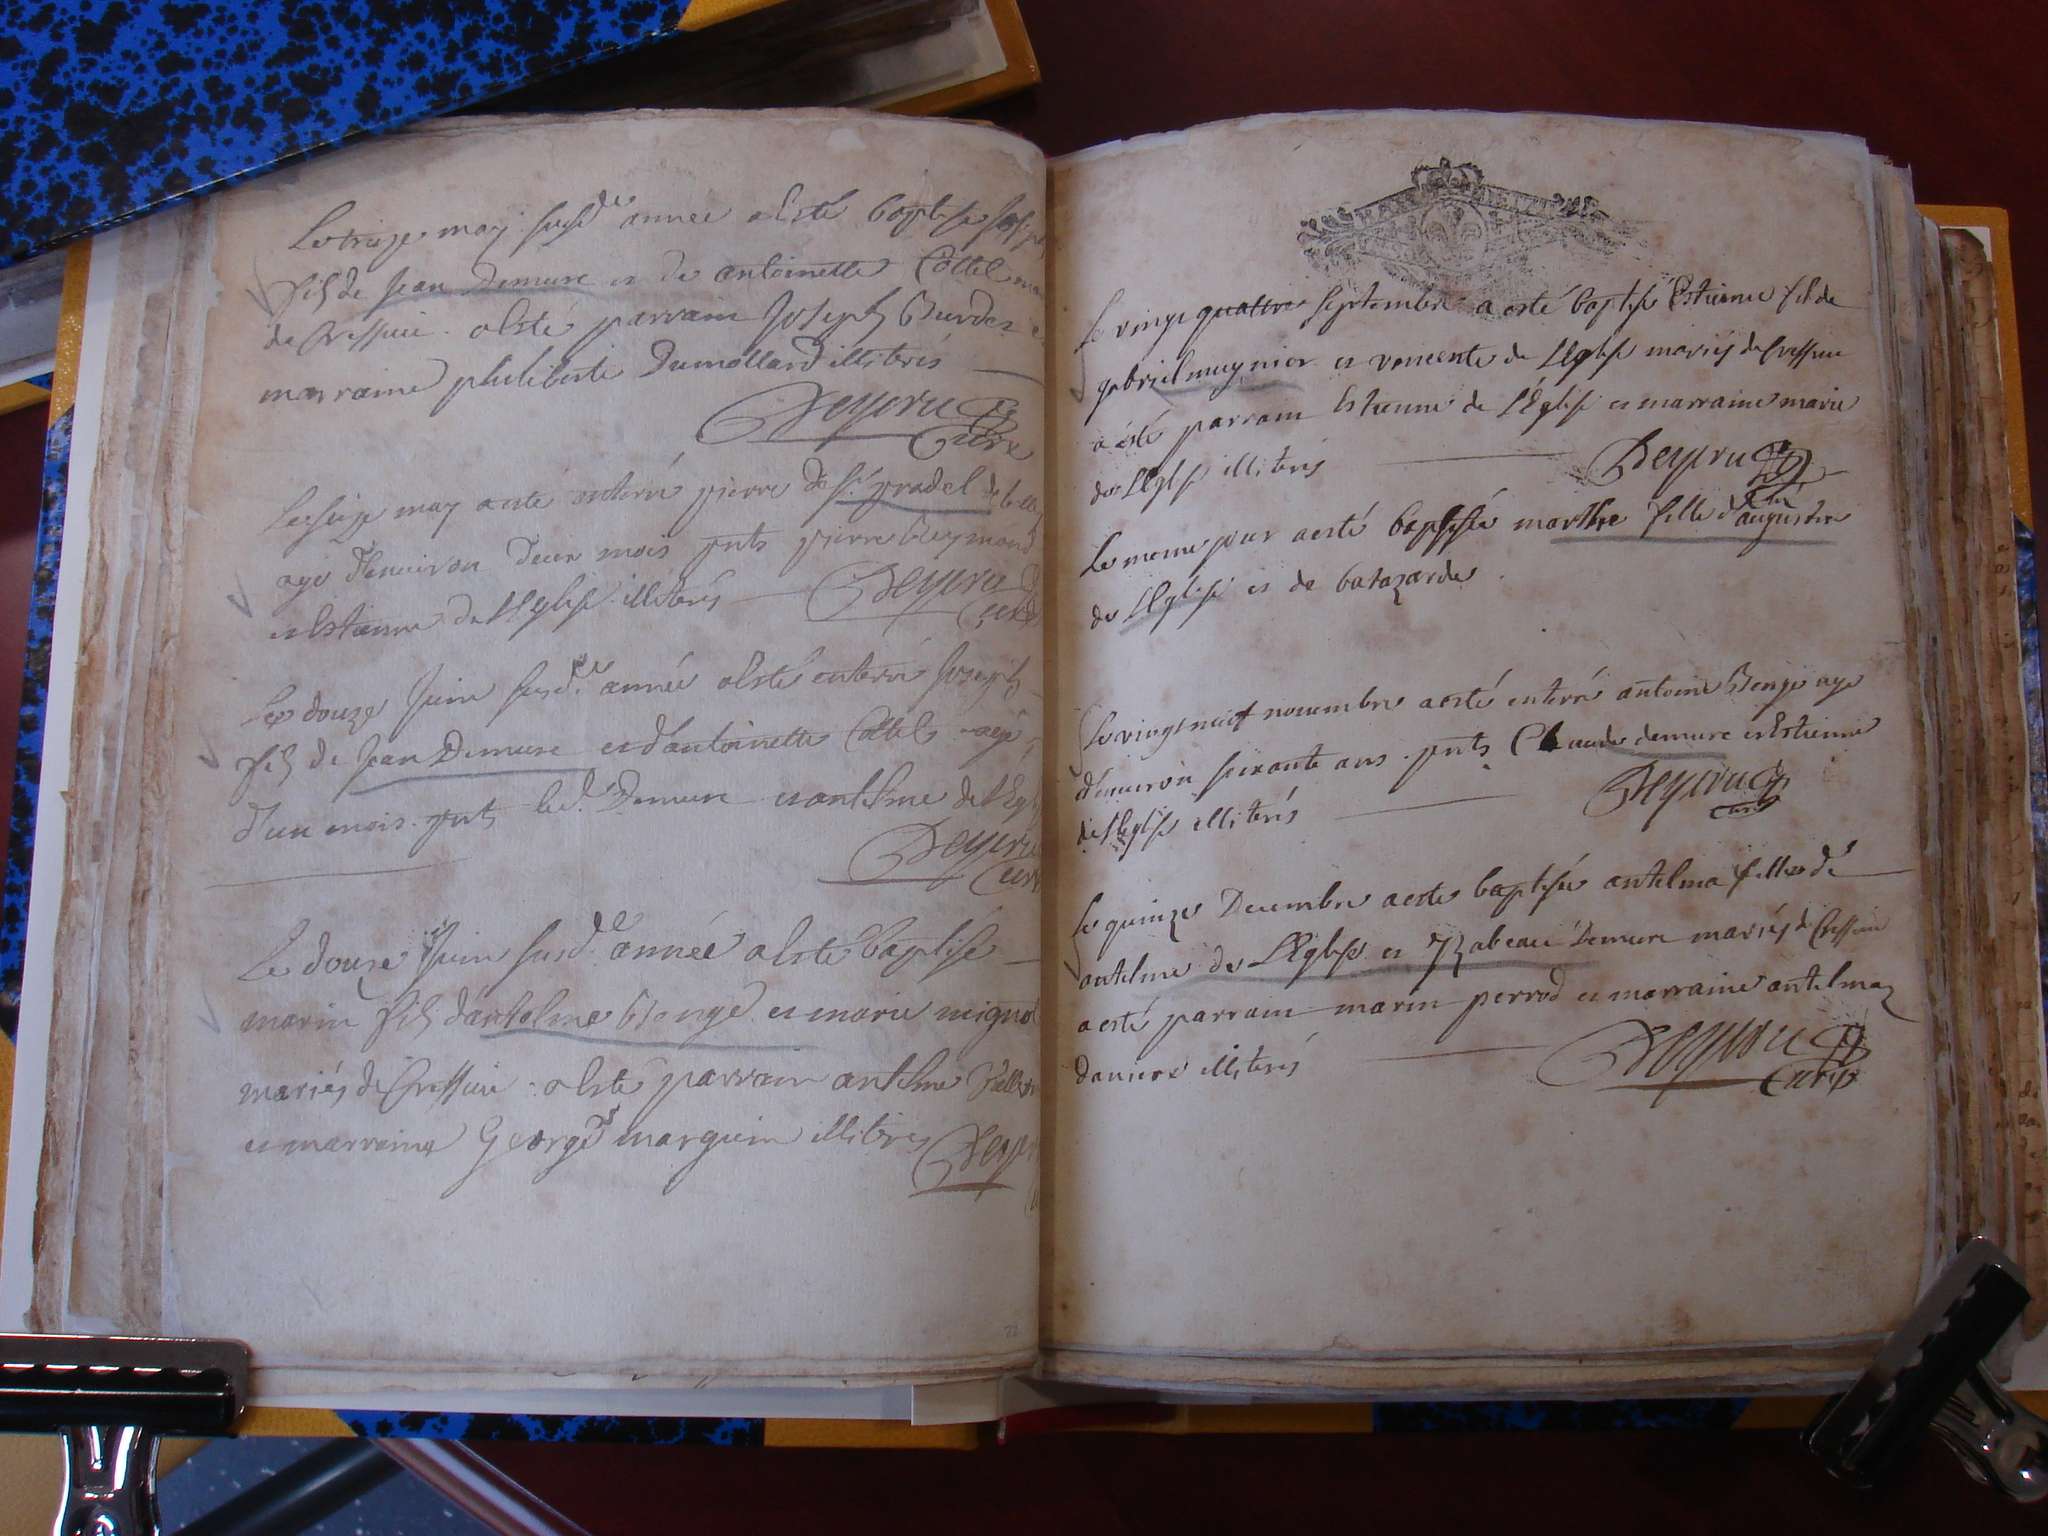 Le treize may susd.e année a esté baptisé Joseph
fils de Jean Demure et de antoinette Cottel
de Cressieu a esté parrain Joseph Burdet
marraine philiberte Dumollard illiterés
Deyeru
Curé
Le seize may a esté enterré pierre de St. pradel de
agé d'environ deux mois pnts pierre Reymond
et Estienne de l'Eglise illiterés Deyeru
Curé
Le douze Juin susd.e année a Esté enterré Joseph
fils de Jean Demure et d'antoinette Cottel agé
d'un mois pnts led. Demure et antelme de l'Egl
Deyeru
Curé
Le douze Juin susd.e année a Esté baptisé
marin fils d'antelme Benge et marie mignot
mariés de Cressieu a Esté parrain antelme
et marraine George marguin illiterés Deyer
Le vingt quatre septembre a esté baptisé Estienne fils de
gabriel mugnier et vincente de L'Eglise mariés de Cressieu
a esté parrain Estienne de L'Eglise et marraine marie
de L'Eglise illiterés Deyeru
Curé
Le meme jour a esté baptisée marthe fille d'augustin
de L'Eglise et de
Le vingt neuf novembre a esté enterré antoine Benge agé
d'environ soixante ans pnts Claude demure et Estienne
de l'Eglise illiterés Deyeru
Curé
Le quinze Decembre a esté baptisée antelma fille de
antelme de L'Eglise et Yzabeau Demure mariés de Cressieu
a esté parrain marin perrod et marraine antelma
illiterés Deyeru
Curé